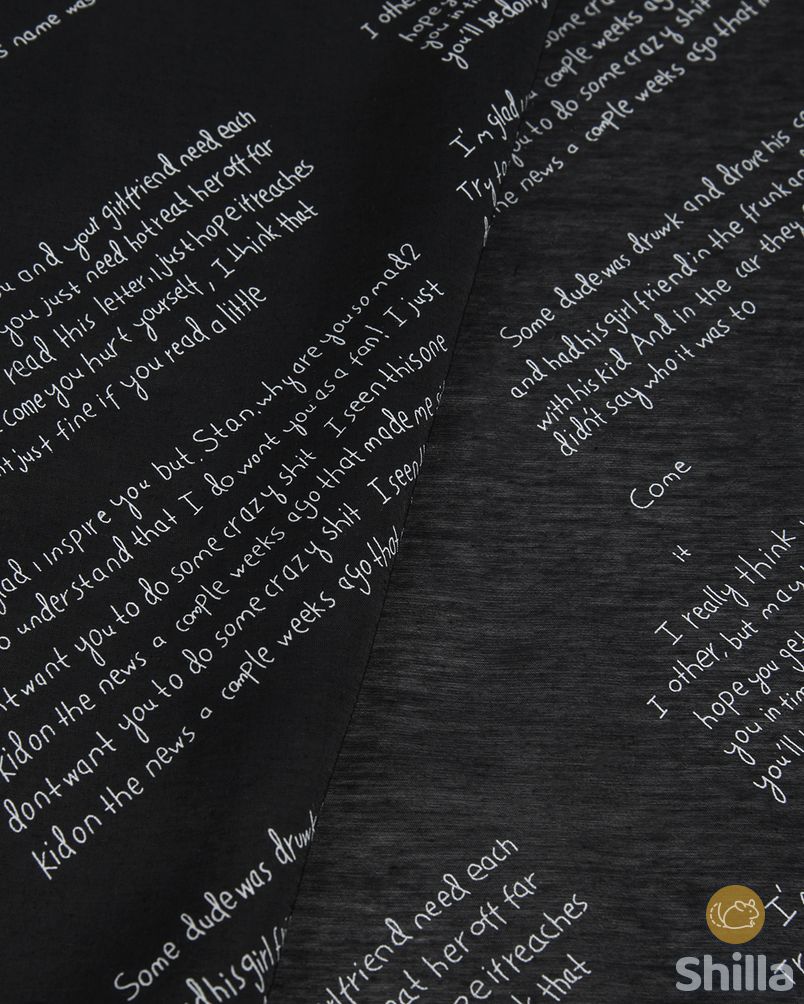 s name was
I other
hope yo
you in ti
you'll be doing
some cra
couple weeks ago
you to do some crazy shit
the news a couple weeks ago that ma
I'm glad
Try to
you and your girlfriend need each
you just need hotreat her off far
read this letter, I just hope it reaches
come you hurt yourself, I think that
it just fine if you read a little
Some dude was drunk and drove his
and had his girlfriend in the frunk an
with his kid And in the car they
didn't say who it was to
glad i inspire you but. Stan, why are you so mad2
o understand that I do want you as a fan! I just
nt want you to do some crazy shit I seen this one
kid on the news a couple weeks ago that made me
dont want you to do some crazy shit I seen
kid on the news a couple weeks ago that
Come
it
I really think
I other, but may
hope you ge
you in tim
you'll
Some dude was drunk
and had his girl f
irlfriend need each
at her off far
ope it reaches
k that
I'
Tr
Shilla